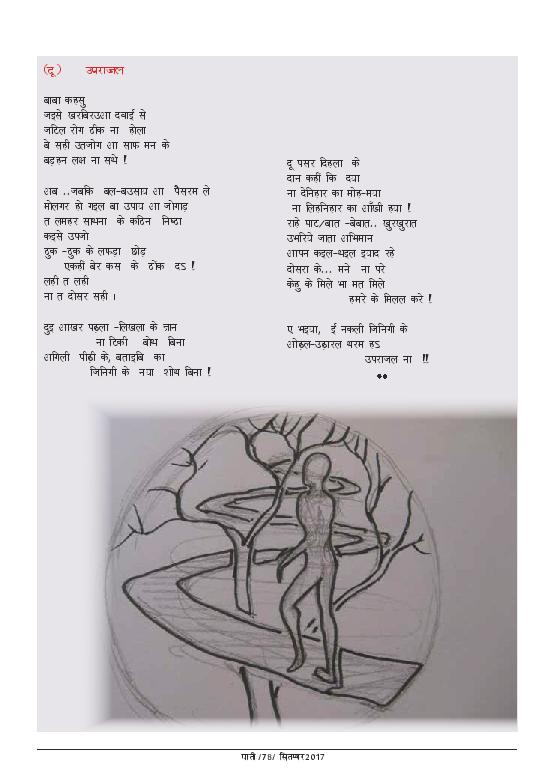 (दू) उपराजल
बाबा कहसु
जइसे खरबिरउआ दवाई से
जटिल रोग ठीक ना होला
बे सही उतजोग आ साफ मन के
बड़हन लक्ष ना सधे !
अब ..जबकि बल-बउसाय आ पैसरम ले
मोलगर हो गइल बा उपाय आ जोगाड़
त लमहर साधना के कठिन निष्ठा
कइसे उपजो
ठुक -ठुक के लफड़ा छोड़
एकहीं बेर कस के ठोंक दऽ !
लही त लही
ना त दोसर सही ।
दुइ आखर पढ़ला -लिखला के ज्ञान
ना टिकी बोध बिना
अगिली पीढ़ी के, बताइबि का
जिनिगी के नया शोध बिना !
दू पसर दिहला के
दान कहीं कि दया
ना देनिहार का मोह-मया
ना लिहनिहार का आँखी हया !
राहे पाट/बात -बेबात.. खुरखुरात
उभरिये जाता अभिमान
आपन कइल-धइल इयाद रहे
दोसरा के... मने ना परे
केहु के मिले भा मत मिले
हमरे के मिलल करे !
ए भइया, ई नकली जिनिगी के
ओढ़ल-उढ़ारल धरम हऽ
उपराजल ना !!
**
पाती /78/ सितम्बर 2017